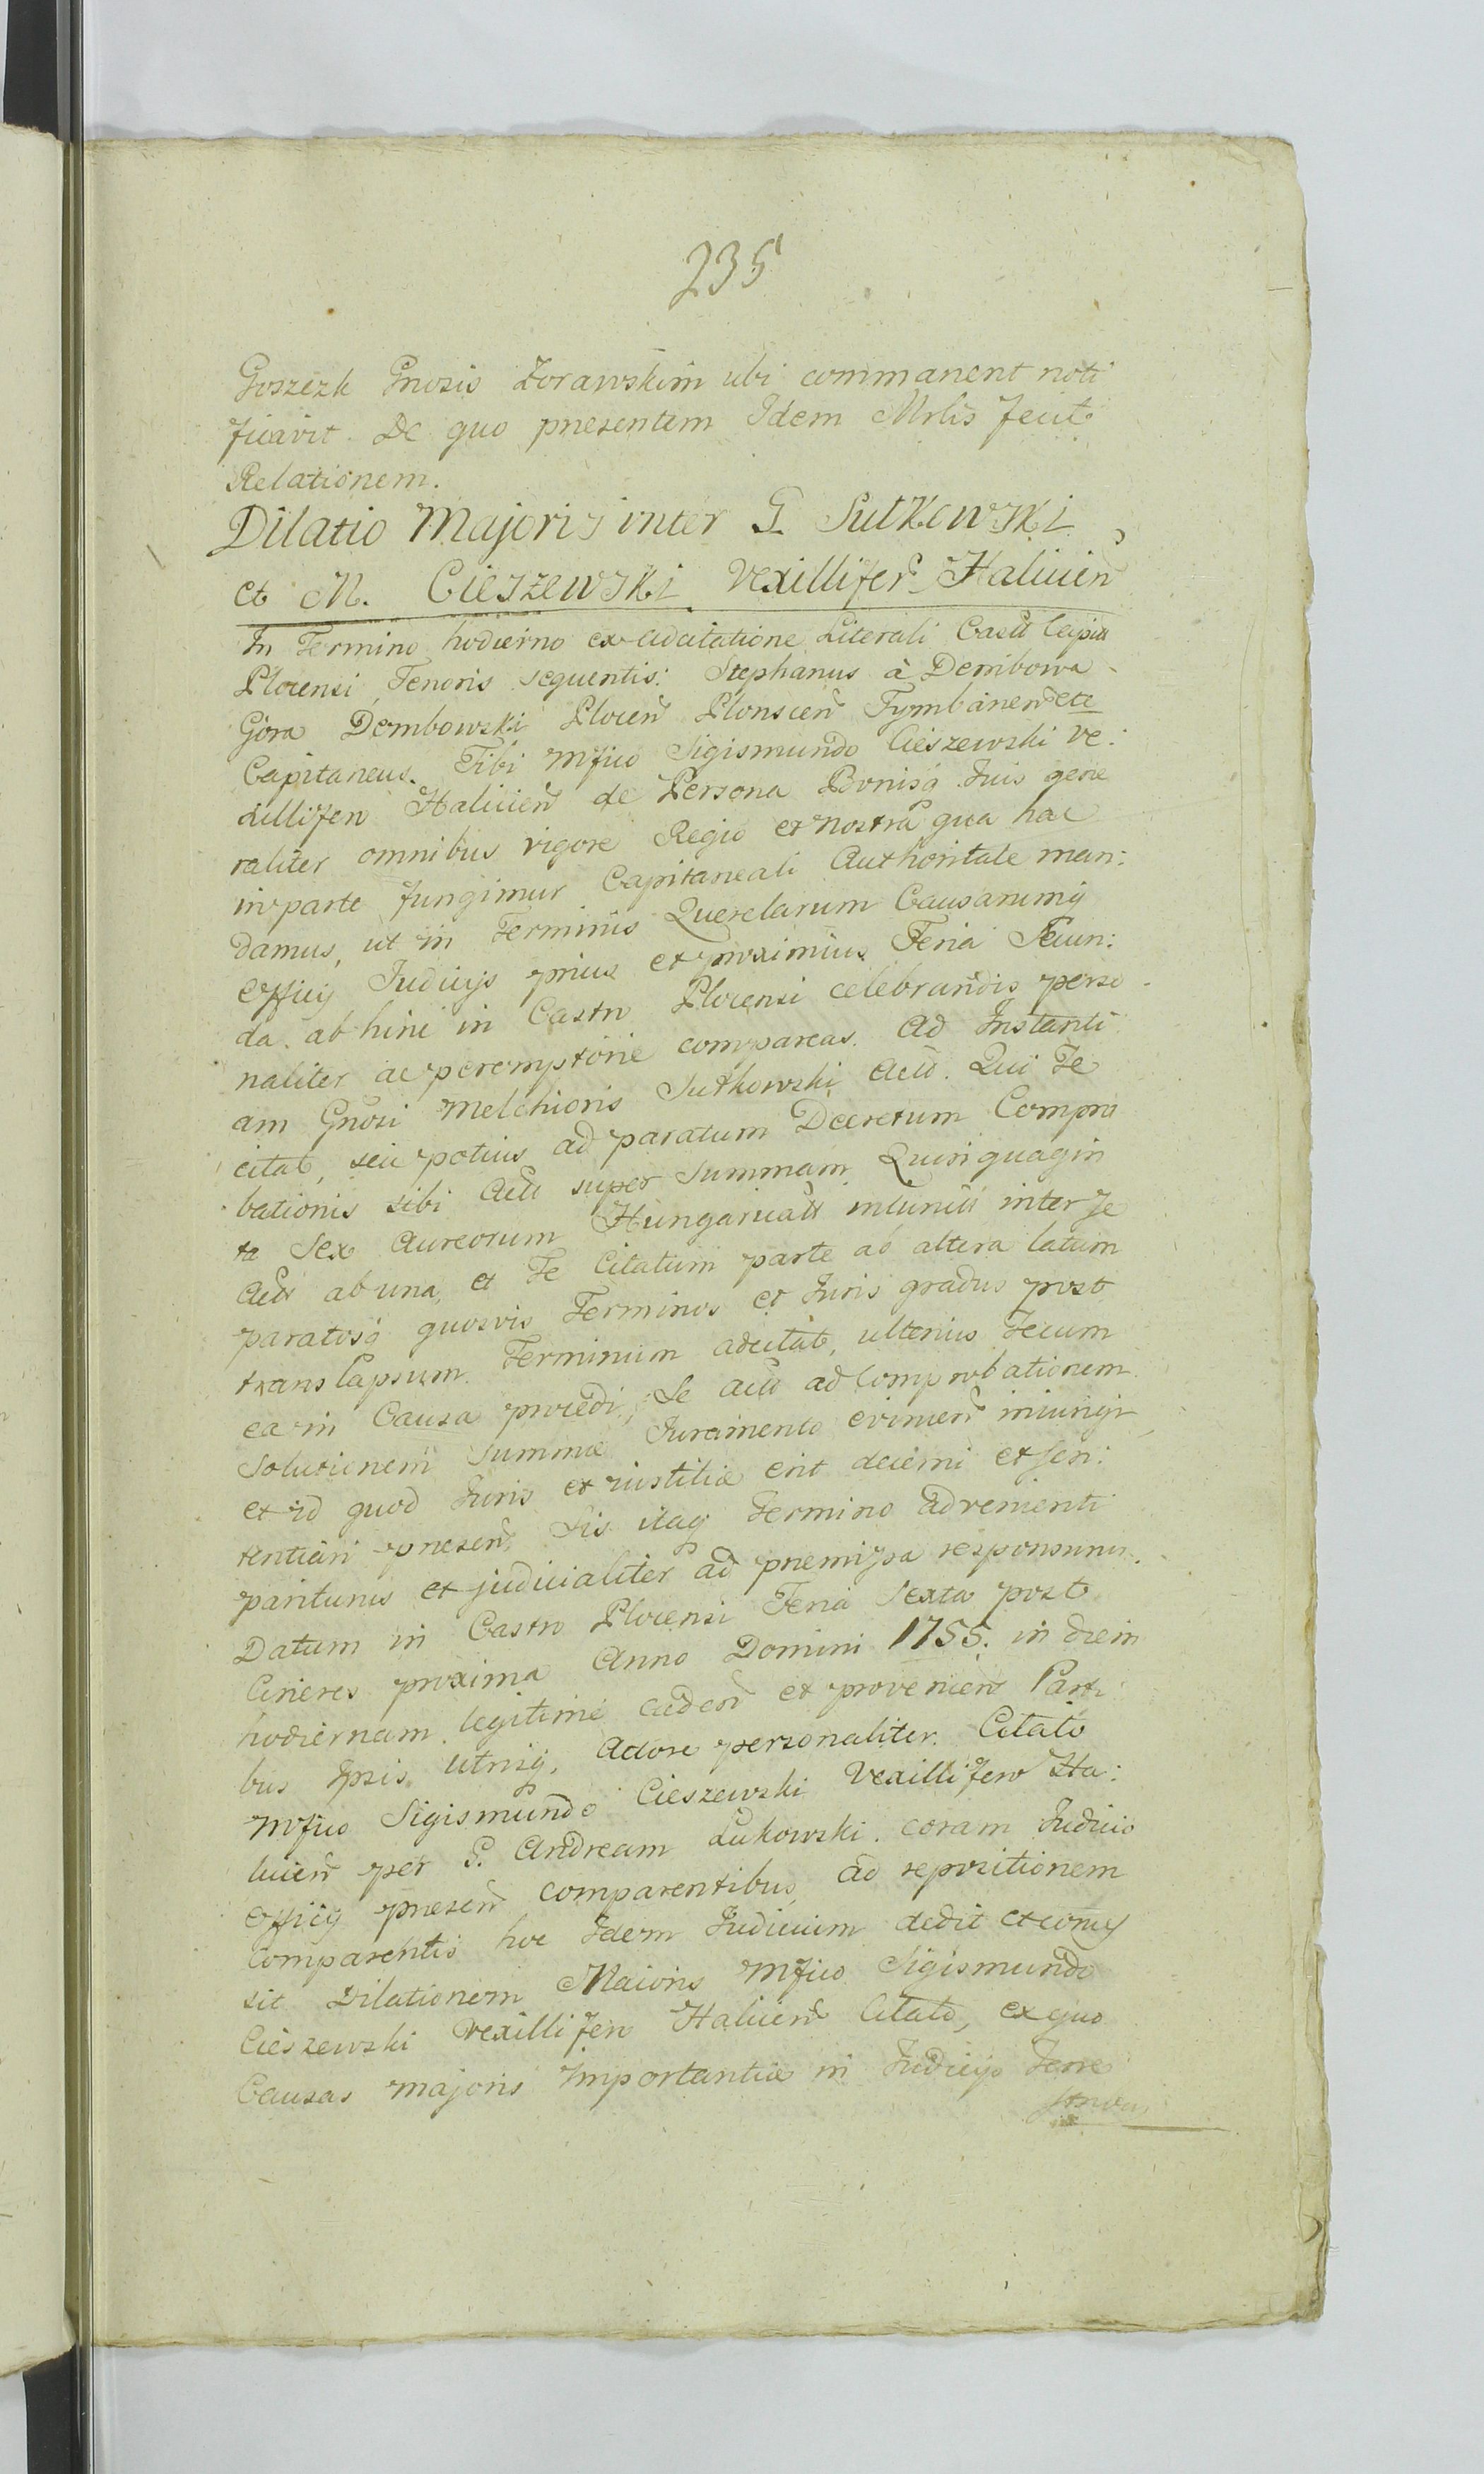 235
Goszczk Gnosis Zorawskim ubi commanent noti
ficavit. De quo presentem Idem Mrlis fecit
Relationem.
Dilatio Majoris inter G. Sutkowski
et M. Cieszewski Vexillifer Halicien
In Termino hodierno ex Adcitatione Literali Castr Capitli
Plocensi Tenoris sequentis: Stephanus à Dembowa
Góra Dembowski Plocen Plonscen Tymbarnen etc
Capitaneus. Tibi Mfico Sigismundo Cieszewski Ve:
xillifero Halicien de Persona Bonisq Tuis gene
raliter omnibus vigore Regio et nostra qua hac
in parte fungimur Capitaneali Authoritate man:
damus, ut in Terminis Querelarum Causarumq
Officij Judicijs prius et proximius Feria Secun:
da ab hinc in Castro Plocensi celebrandis perso
naliter ac peremptorie compareas. Ad Instanti
am Gnosi Melchioris Sutkowski Act. Qui Te
citat, seu potius ad paratum Decretum Compro
bationis sibi Acti super Summam Quinquagin
ta Sex Aureorum Hungaricall intuniti inter se
Act ab una, et Te Citatum parte ab altera latum
paratosq quosvis Terminos et Juris gradus post
translapsum Terminum adcitat, ulterius Tecum
ea in Causa procedi, Se Act ad Comprobationem
Solutionem Summæ Juramento evincen iniungi,
et id quod Juris et iustitiæ erit decerni et sen:
tentiari presen. Sis itaq Termino advenienti
pariturus et judicialiter ad premissa responsurus.
Datum in Castro Plocensi Feria Sexta post
Cineres proxima Anno Domini 1755. in diem
hodiernam legitime caden et provenien Parti
bus Ipsis utrisq, Actore personaliter. Citato
Mfico Sigismundo Cieszewski Vexillifero Ha:
licien per G. Andream Łukowski coram Judicio
Officij presen comparentibus, ad repositionem
comparentis hoc Idem Judicium dedit et comes
sit Dilationem Maioris Mfico Sigismundo
Cieszewski Vexillifero Halicien Citato, ex quo
Causas majoris importantiæ in Judicijs Terre